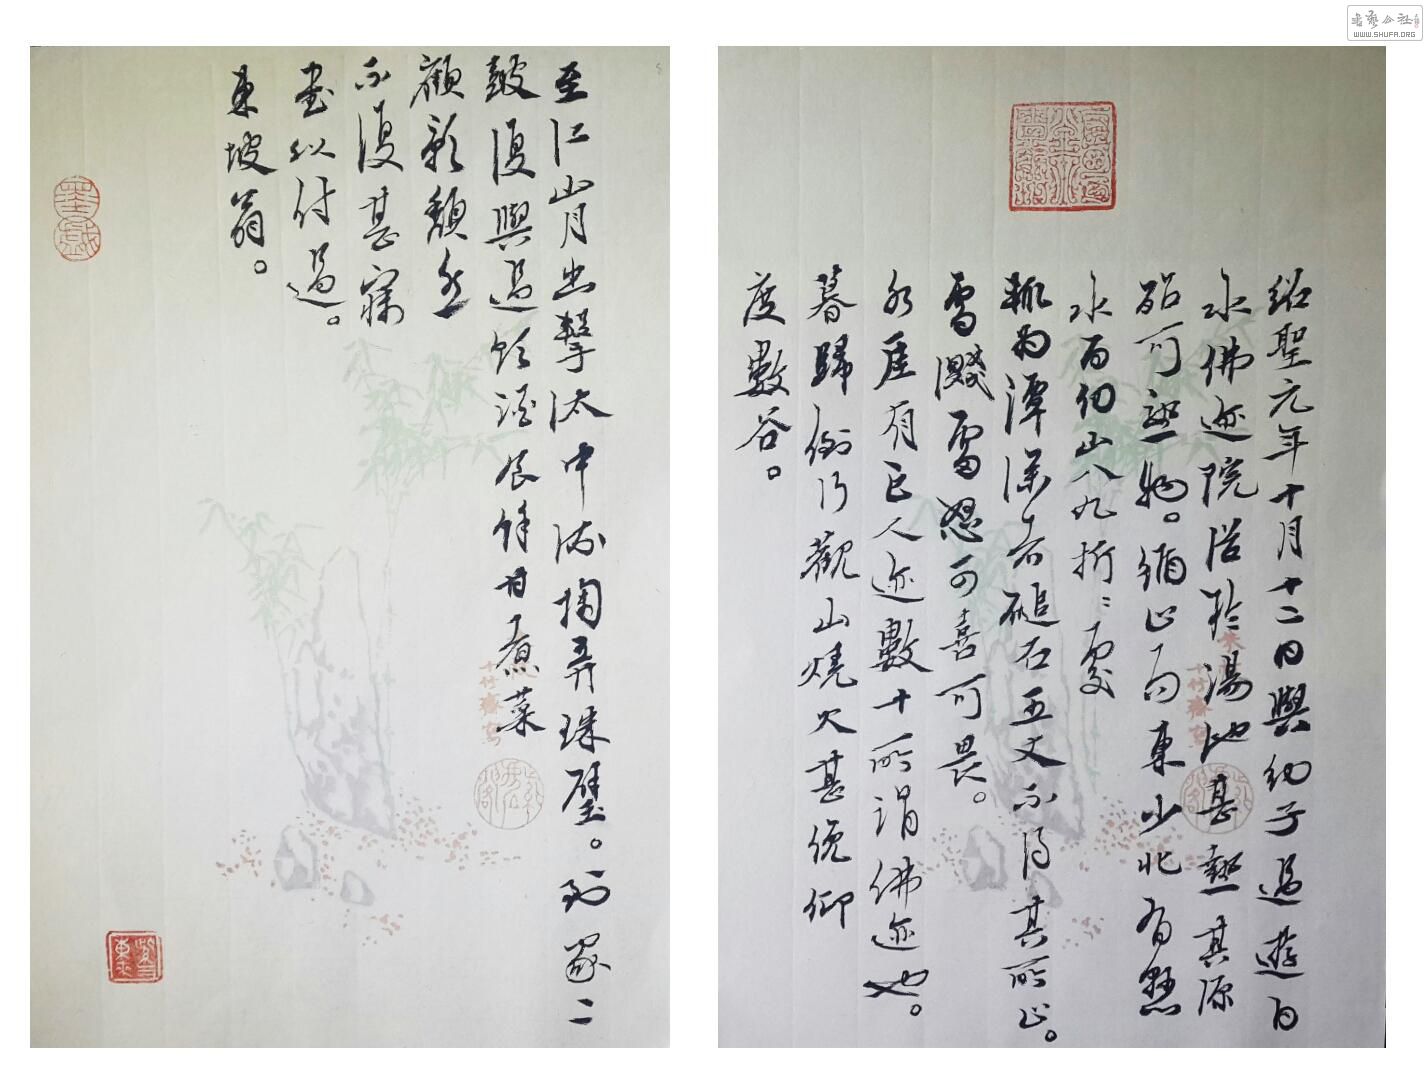 紹聖元年十月十二日與幼子過遊白
水佛迹院浴於湯池甚熱其源
殆可熟物。循山而東少北有懸
水百仞山八九折折處
輒為潭深者磓石五丈不得其所止。
雪濺雷怒可喜可畏。
水崖有巨人迹數十所謂佛迹也。
暮歸倒行觀山燒火甚俛仰
度數谷。
至江山月出擊汰中流掬弄珠璧。到家二
鼓復與過飲酒食餘甘煮菜
顧影頹然
不復甚寐
書以付過。
東坡翁。
十竹齋寫
十竹齋寫
書藝公社
WWW.SHUFA.ORG